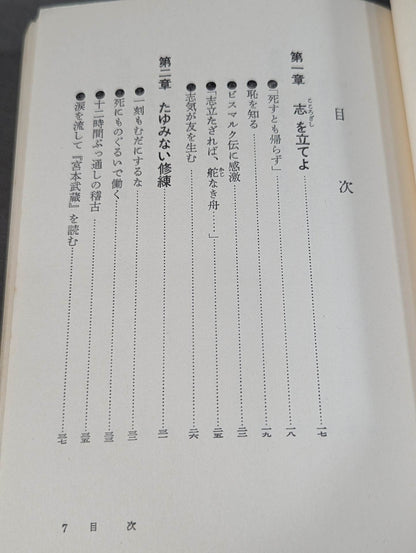 目次
第一章 志を立てよ……一七
こころざし
●「死すとも帰らず」……一八
●恥を知る……一九
●ビスマルク伝に感激……二三
●「志立たざれば、舵なき舟……」……二五
かじ
●志気が友を生む……二六
第二章 たゆみない修練……三一
●一刻もむだにするな……三二
●死にものぐるいで働く……三三
●十二時間ぶっ通しの稽古……三五
●涙を流して『宮本武蔵』を読む……三七
7 目次